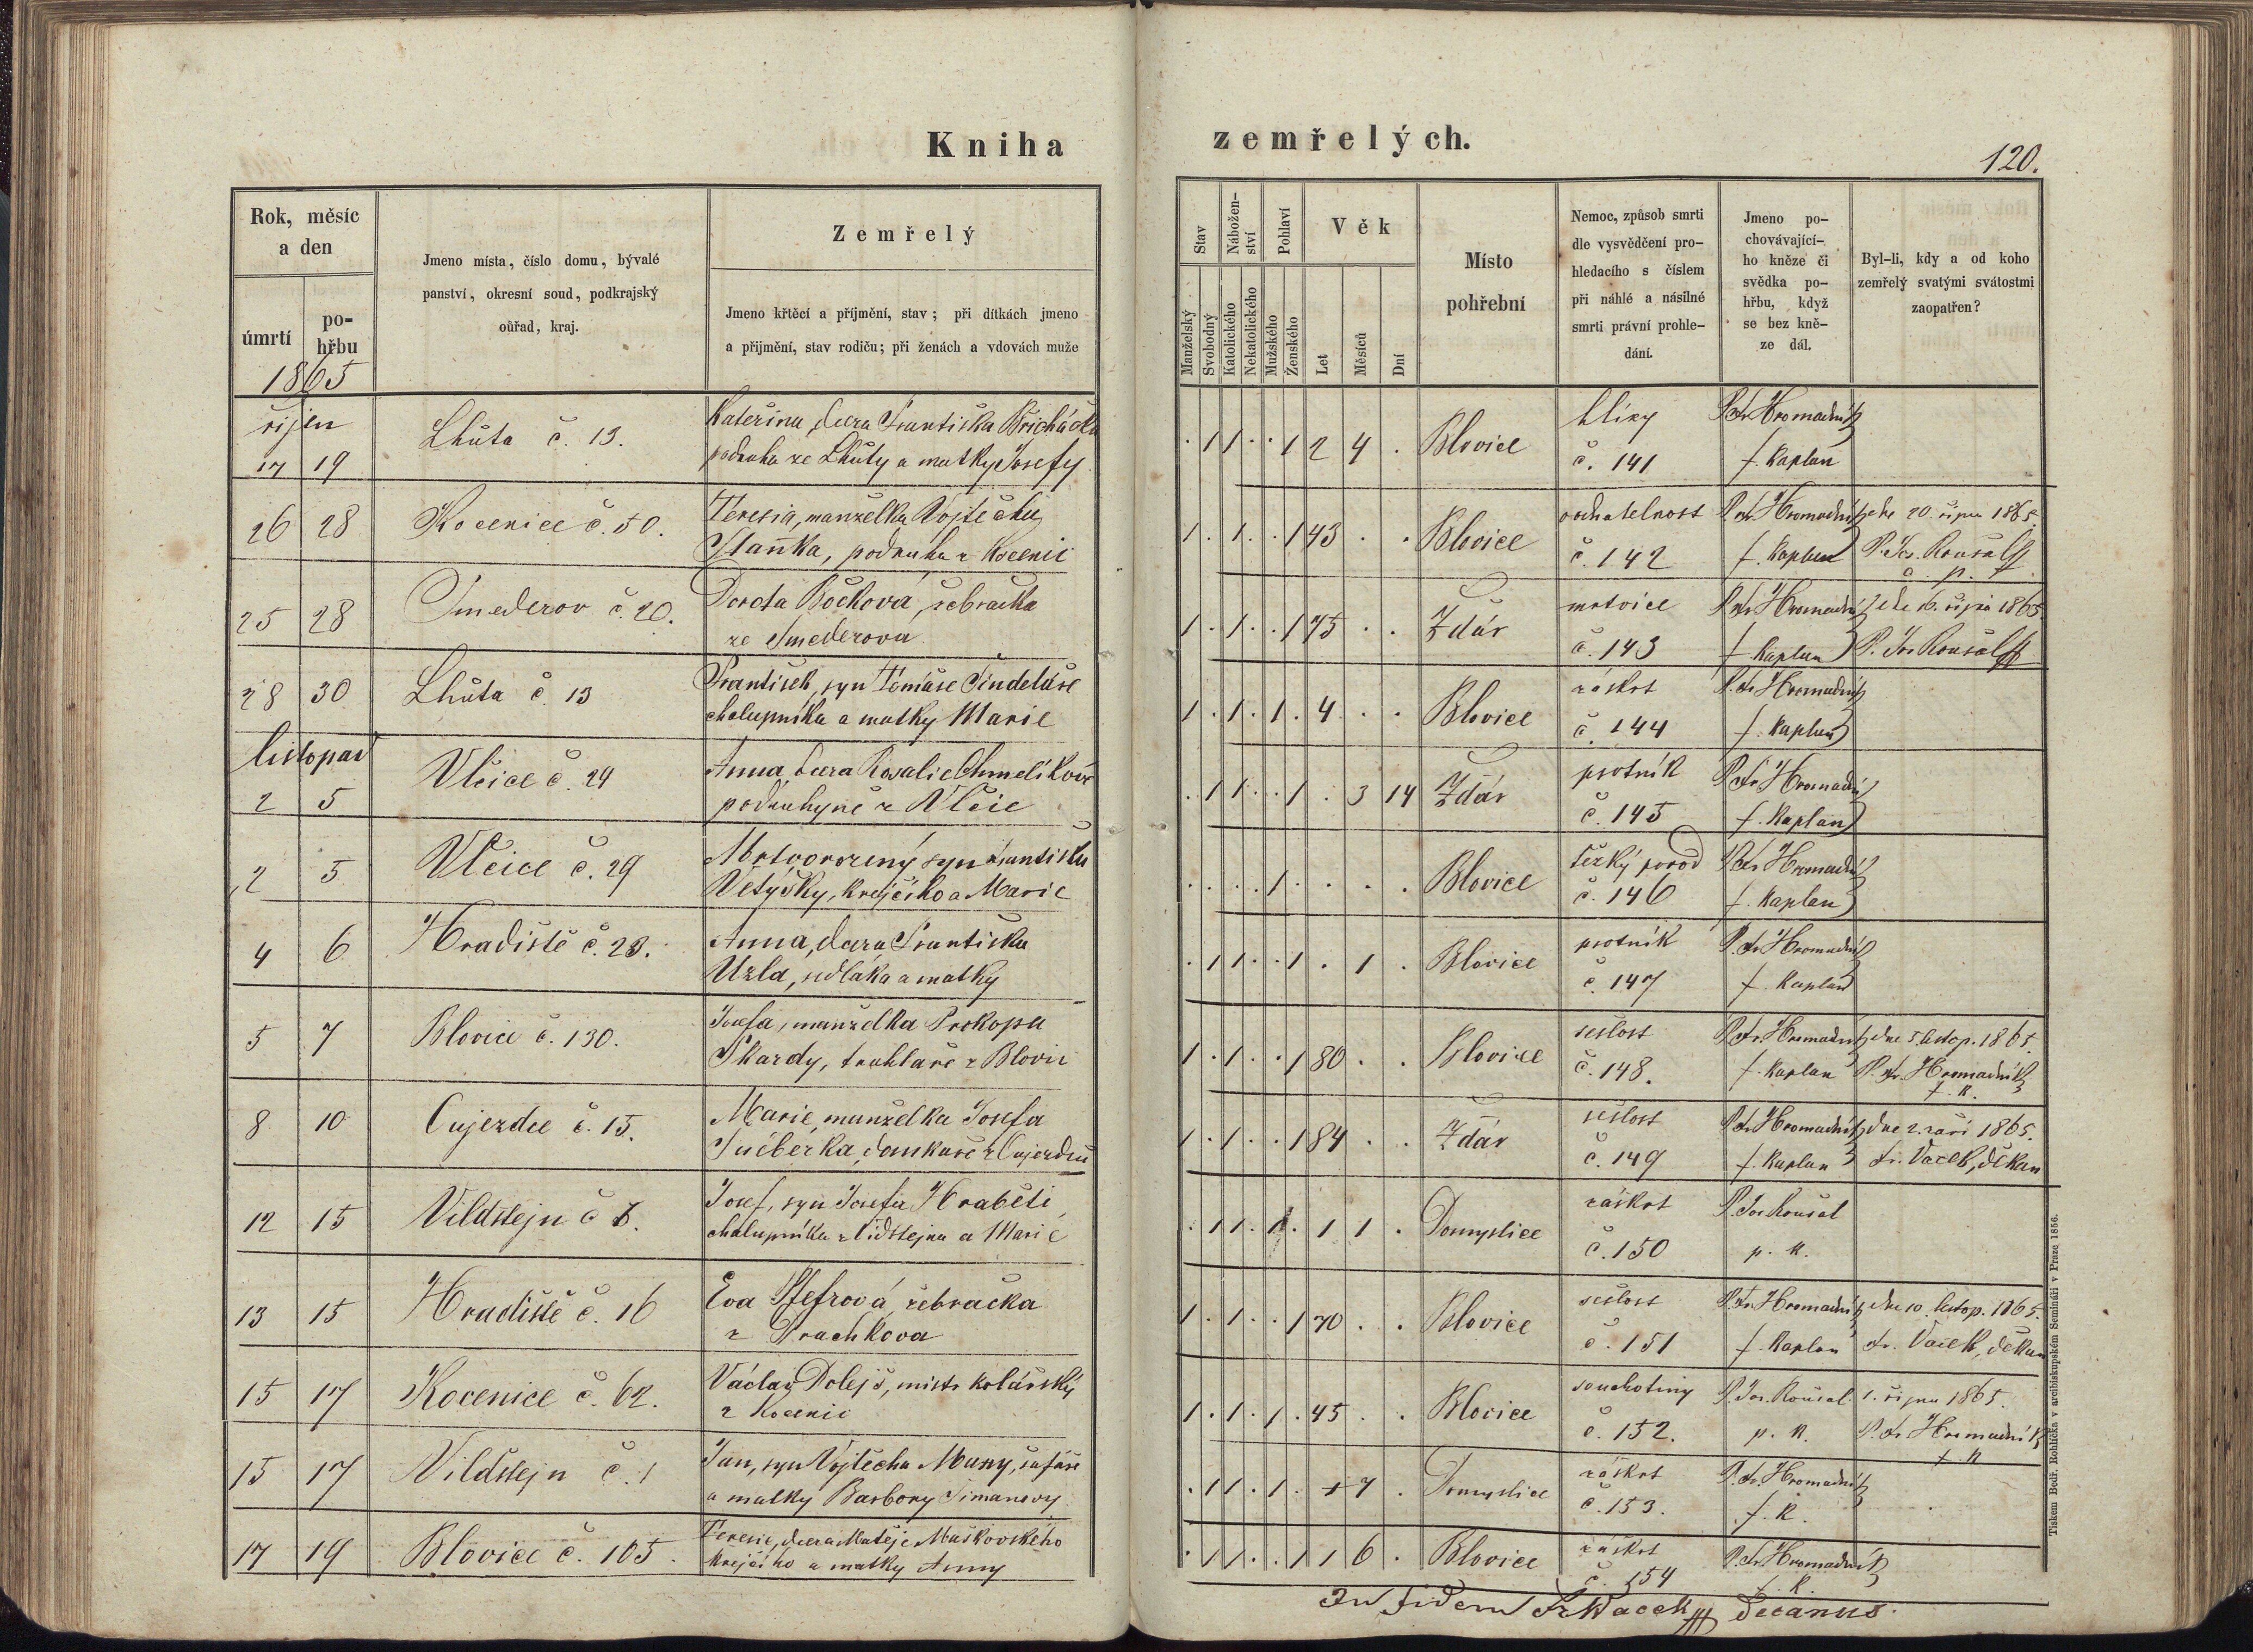 Kniha
Rok, měsíc
a den
úmrtí
po-
hřbu
1865
Jmeno místa, číslo domu, bývalé
panství, okresní soud, podkrajský
ouřad, kraj.
Zemřelý
Jmeno křtěcí a příjmění, stav; při dítkách jmeno
a přijmění, stav rodiču; při ženách a vdovách muže
říjen
17 19 Lhůta č. 13.
Kateřina, dcera Františka
podruha ze Lhůty a matky Josefy
26 28 Kocenice č. 50.
Teresia, manželka Vojtěcha
Staňka, podruha z Kocenic
25 28 Smederov č. 20.
Dorota Bočková, žebračka
ze Smederova
28 30 Lhůta č. 13
František, syn Tomáše Šindeláře
chalupníka a matky Marie
listopad
2 5 Vlčice č. 24
Anna, dcera Rosalie Chmelíkové
podruhyně z Vlčic
2 5 Vlčice č. 29
Mrtvorozený syn Františka
krejčího a Marie
4 6 Hradiště č. 23.
Anna, dcera Františka
Uzla, sedláka a matky
5 7 Blovice č. 130.
Josefa, manželka Prokopa
Škardy, truhláře z Blovic
8 10 Oujezdce č. 15.
Marie, manželka Josefa
domkáře z Oujezdce
12 15 Vildštejn č.
Josef, syn Josefa Hraběti,
chalupníka z Vidštejna a Marie
13 15 Hradiště č. 16
Eva žebračka
z Drachkova
15 17 Kocenice č. 62.
Václav Dolejš, mistr kolářský
z Kocenic
15 17 Vildštejn č. 1
Jan, syn Vojtěcha Muny, šafáře
a matky Barbory Šimanovy
17 19 Blovice č. 105.
Teresie, dcera Matěje Maškovského
krejčího a matky Anny
zemřelých.
120.
Stav
Manželský
Svobodný
Nábožen-
ství
Katolického
Nekatolického
Pohlaví
Mužského
Ženského
Věk
Let
Měsíců
Dní
Místo
pohřební
Nemoc, způsob smrti
dle vysvědčení pro-
hledacího s číslem
při náhlé a násilné
smrti právní prohle-
dání.
Jmeno po-
chovávající-
ho kněze či
svědka po-
hřbu, když
se bez kně-
ze dál.
Byl-li, kdy a od koho
zemřelý svatými svátostmi
zaopatřen?
. 1 1 . . 1 2 4 . Blovice
hlízy
č. 141
P. Fr. Hromadník
f. kaplan
1 . 1 . . 1 43 . . Blovice
vodnatelnost
č. 142
P. Fr. Hromadník
f. kaplan
dne 20. října 1865.
P. Jos. Roušal
p.
1 . 1 . . 1 75 . . Ždár
mrtvice
č. 143
P. Fr. Hromadník
f. kaplan
dne 16. října 1865
P. Jos. Roušal
1 . 1 . 1 . 4 . . Blovice
záškrt
č. 144
P. Fr. Hromadník
f. kaplan
. 1 1 . . 1 . 3 14 Ždár
psotník
č. 145
P. Fr. Hromadník
f. Kaplan
. . . . 1 . . . . Blovice
těžký porod
č. 146
P. Fr. Hromadník
f. kaplan
. 1 1 . . 1 . 1 . Blovice
psotník
č. 147
P. Fr. Hromadník
f. Kaplan
1 . 1 . . 1 80 . . Blovice
sešlost
č. 148.
P. Fr. Hromadník
f. kaplan
dne 5. listop. 1865.
P. Fr. Hromadník
f. K.
1 . 1 . . 1 84 . . Ždár
sešlost
č. 149
P. Fr. Hromadník
f. kaplan
dne 2. září 1865.
Fr. Vacek, děkan
. 1 1 . 1 . 1 1 . Domyslice
záškrt
č. 150
P. Jos. Roušal
p. K.
1 . 1 . . 1 70 . . Blovice
sešlost
č. 151
P. Fr. Hromadník
f. kaplan
dne 10. listop. 1865.
Fr. Vacek, děkan
1 . 1 . 1 . 45 . . Blovice
souchotiny
č. 152.
P. Jos. Roušal
p. K.
1. října 1865.
P. Fr. Hromadník
f. K
. 1 1 . 1 . 7 . Domyslice
záškrt
č. 153.
P. Fr. Hromadník
f. K.
. 1 1 . . 1 1 6 . Blovice
záškrt
č. 154
P. Fr. Hromadník
f. K.
In fidem Fr. Wacek decanus.
Tiskem Bedř. Rohlíčka v arcibiskupském Semináři v Praze 1856.